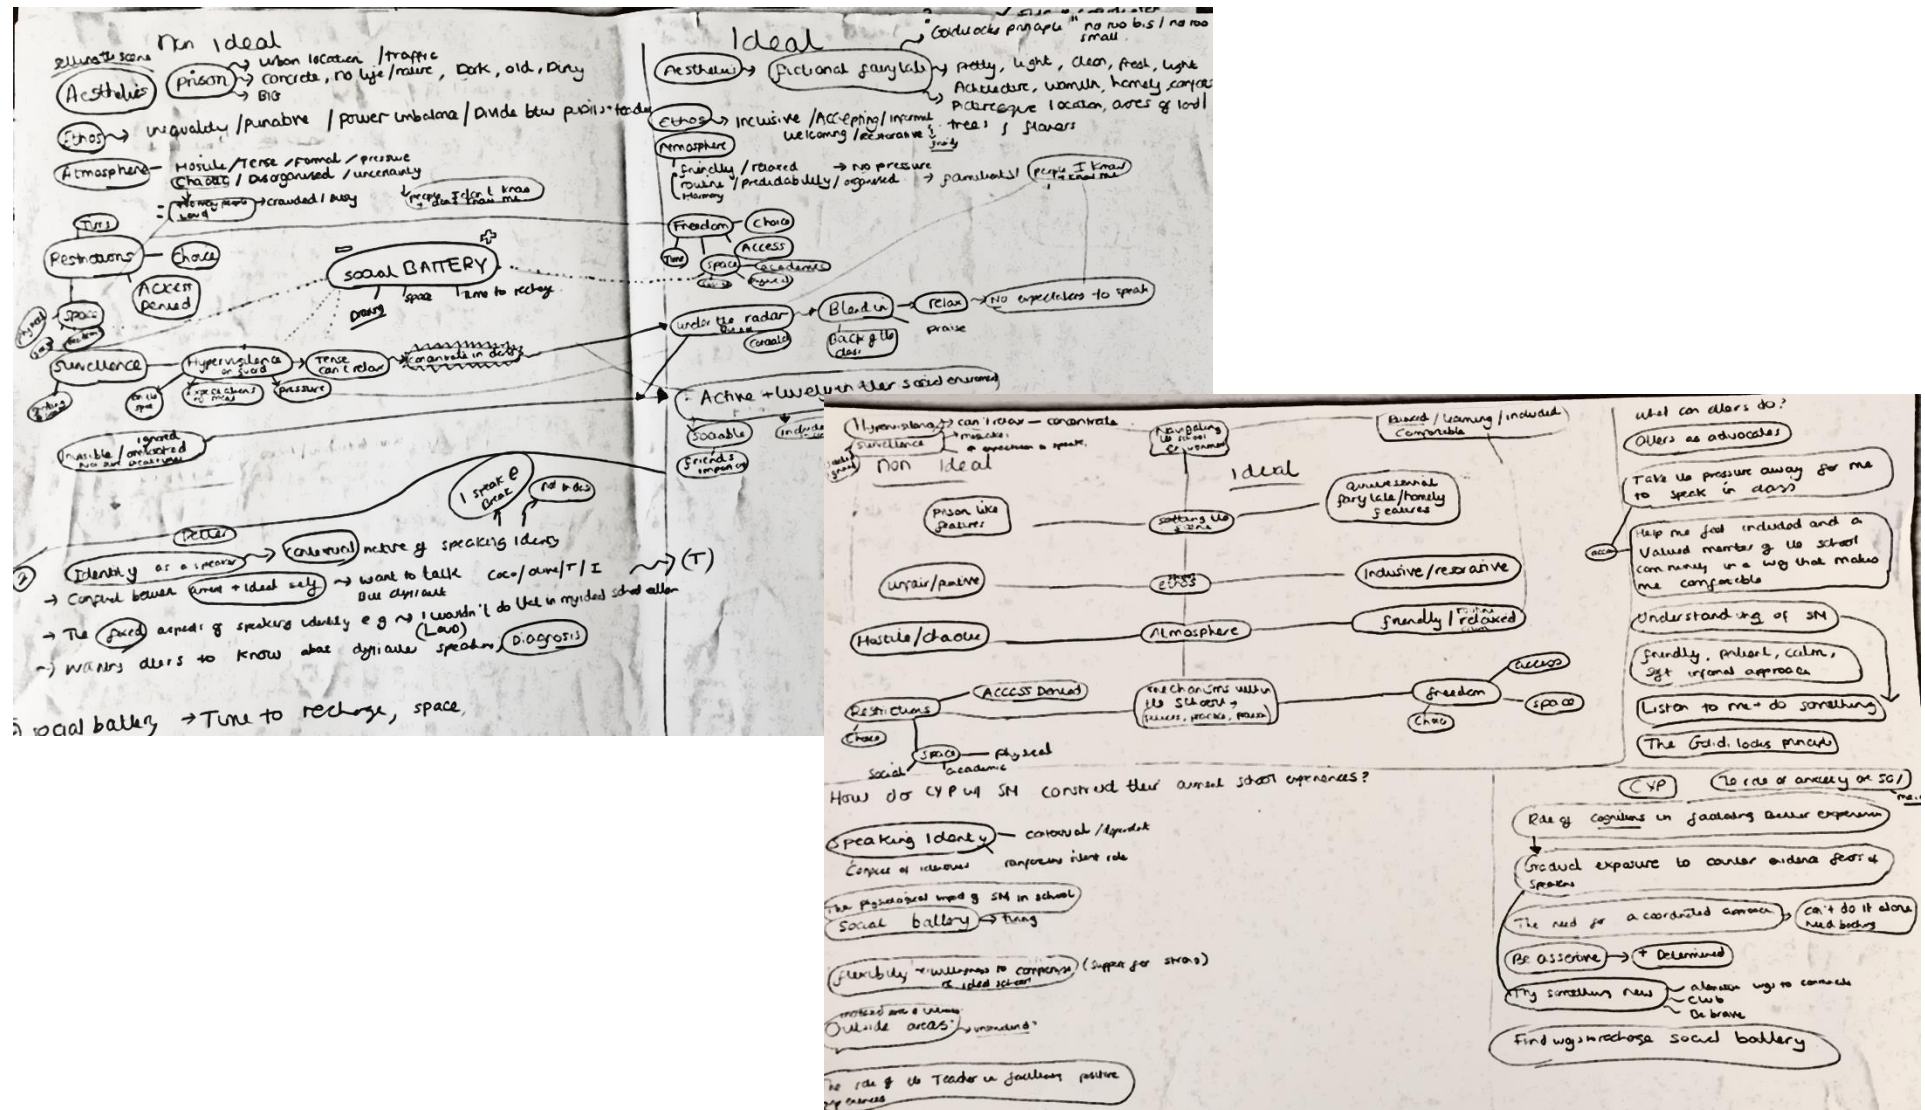 Non Ideal
Setting the scene
Aesthetics
Prison
urban location /traffic
concrete, no life/nature, Dark, old, Dirty
BIG
Ethos
inequality /punative /power imbalance / Divide btw pupils + teacher
Atmosphere
Hostile /Tense /Formal /pressure
Chaotic / Disorganised /uncertainty
Loud
crowded / busy
people I don't know
+ don't know me
Time
Restrictions
Choice
Access
Denied
space
physical
social BATTERY
Draining
space
Time to recharge
Survellence
Hypervigilence
on guard
Tense
can't relax
concentrate in class
on the
spot
expectations
pressure
ignored
Invisible / overlooked
Ideal
"Goldilocks principle" no too big / no too
small
Aesthetics
fictional fairytale
Pretty, light, clean, fresh, light
Architecture, warmth, homely, comfort
Picturesque location, acres of land
trees & flowers
Ethos
Inclusive /Accepting/ informal
welcoming /restorative
Atmosphere
friendly / relaxed → no pressure
routine / predictability / organised → familiarity
Harmony
people I know
+ know me
Freedom
Choice
Time
Access
Space
academic
physical
under the radar
Blend in
Back of the
class
relax
praise
No expectations to speak
Active + lively in their social environment
Sociable
included
friends
important
I speak @
Break
not in class
better
Identity as a speaker
contextual nature of speaking identity
→ Conflict between current + ideal self → want to talk
But difficult
→ The fixed aspects of speaking identity e.g → I wouldn't do that in my ideal school either
(Lava)
→ wanting others to know about difficulties speaking, Diagnosis
(T)
social battery → Time to recharge, space
Hypervigilence → can't relax – concentrate
Survellence
mistakes
expectation to speak
Non Ideal
Navigating
the school
Environment
Ideal
Praised / learning / included
Comfortable
prison like
features
setting the
scene
quintessential
fairytale/homely
features
unfair/punative
ethos
Inclusive/restorative
Hostile/chaotic
Atmosphere
friendly / relaxed
routine
calm
Restrictions
Access Denied
Choice
Space
physical
social
academic
mechanisms within
the school →
policies, practice, praise
freedom
access
space
Choice
what can others do?
Others as advocates
Take the pressure away for me
to speak in class
Help me feel included and a
valued member of the school
community in a way that makes
me comfortable
Understanding of SM
friendly, patient, calm,
soft informal approach
Listen to me + do something
The Goldilocks principle
How do CYP w/ SM construct their current school experiences?
Speaking Identity
contextual /dependent
Conflict of identities
reinforcing silent role
The physiological impact of SM in school
Social battery → tiring
flexibility + willingness to compromise (support for strong)
re ideal school
Outside areas
The role of the Teacher in facilitating positive
experiences
CYP
The role of anxiety or SC/
Role of cognitions in facilitating Better experiences
Gradual exposure to counter evidence fears of
speaking
The need for a coordinated approach
can't do it alone
need backing
Be assertive → + Determined
Try something new
alternative ways to communicate
Club
Be brave
Find ways to recharge social battery